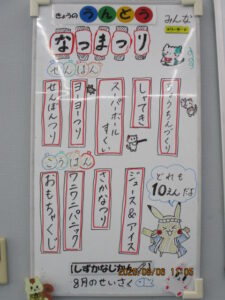 きょうの うんどう
みんな
なつまつり
ぜんはん
ちょうちんづくり
しゃてき
スーパーボールすくい
ヨーヨーつり
せんぼんつり
こうはん
ジュース&アイス
さかなつり
ワニワニパニック
おもちゃくじ
どれも
10えんだよ
しずかなじかん
8月のせいさく